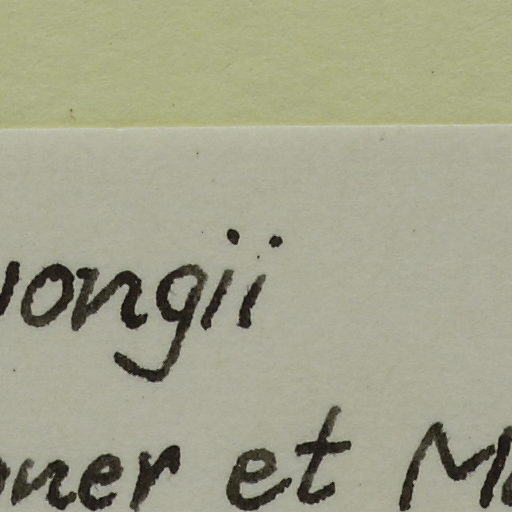 wongii
oner et M